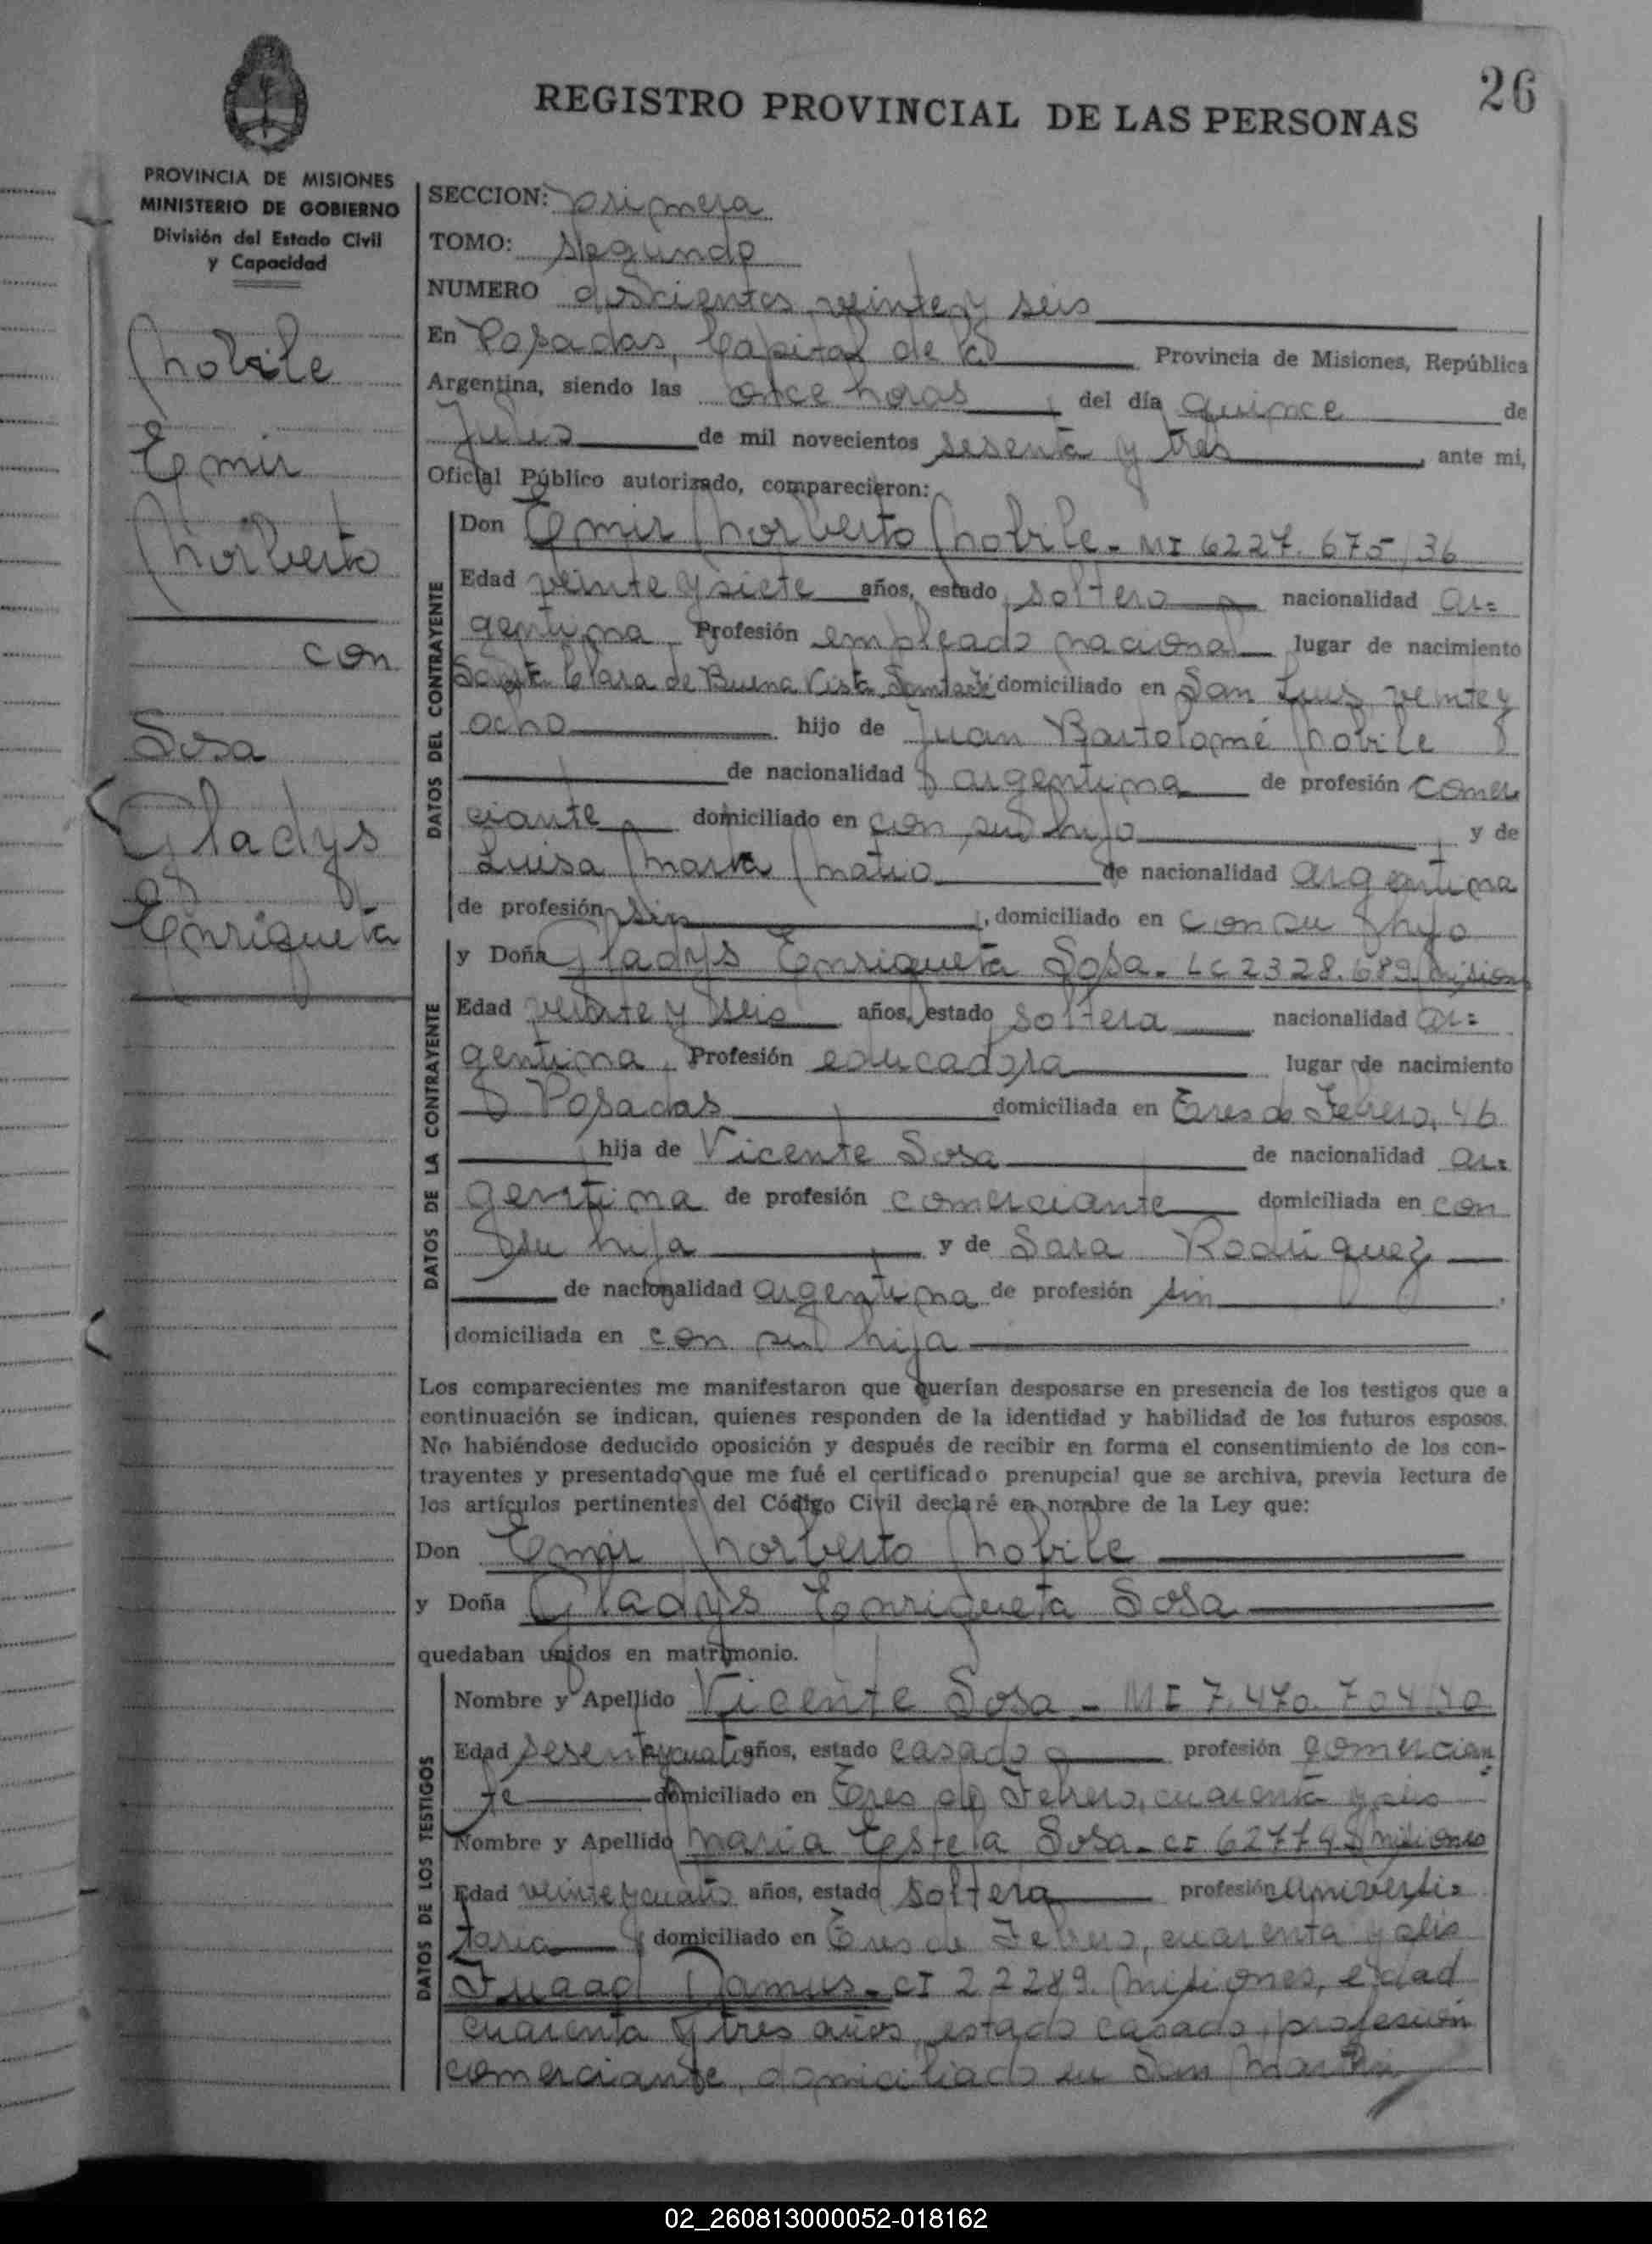 26
REGISTRO PROVINCIAL DE LAS PERSONAS
PROVINCIA DE MISIONES
MINISTERIO DE GOBIERNO
División del Estado Civil
y Capacidad
Nobile
Emir
Norberto
con
Sosa
Gladys
Enriqueta
SECCION: primera
TOMO: segundo
NUMERO doscientos veinte y seis
En Posadas, Capital de la Provincia de Misiones, República
Argentina, siendo las once horas del día quince de
Julio de mil novecientos sesenta y tres, ante mi,
Oficial Público autorizado, comparecieron:
DATOS DEL CONTRAYENTE
Don Emir Norberto Nobile - MI 6227.675/36
Edad veinte y siete años, estado soltero nacionalidad ar=
gentina Profesión empleado nacional lugar de nacimiento
Santa Clara de Buena Vista Santa Fé domiciliado en San Luis veinte y
ocho hijo de Juan Bartolomé Nobile
de nacionalidad argentina de profesión comer
ciante domiciliado en con su hijo y de
Luisa Marta de nacionalidad argentina
de profesión sin, domiciliado en con su hijo
DATOS DE LA CONTRAYENTE
y Doña Gladys Enriqueta Sosa - LC 2328.689 Misiones
Edad veinte y seis años, estado soltera nacionalidad ar=
gentina, Profesión educadora lugar de nacimiento
Posadas domiciliada en Tres de Febrero, 46
hija de Vicente Sosa de nacionalidad ar=
gentina de profesión comerciante domiciliada en con
su hija y de Sara Rodriguez
de nacionalidad argentina de profesión sin
domiciliada en con su hija
Los comparecientes me manifestaron que querían desposarse en presencia de los testigos que a
continuación se indican, quienes responden de la identidad y habilidad de los futuros esposos.
No habiéndose deducido oposición y después de recibir en forma el consentimiento de los con-
trayentes y presentado que me fué el certificado prenupcial que se archiva, previa lectura de
los artículos pertinentes del Código Civil declaré en nombre de la Ley que:
Don Emir Norberto Nobile
y Doña Gladys Enriqueta Sosa
quedaban unidos en matrimonio.
DATOS DE LOS TESTIGOS
Nombre y Apellido Vicente Sosa - MI 7.470.704
Edad sesenta y cuatro años, estado casado profesión comercian
te domiciliado en Tres de Febrero, cuarenta y seis
Nombre y Apellido Maria Estela Sosa - CI 62779 Misiones
Edad veinte y cuatro años, estado soltera profesión universi=
taria domiciliado en Tres de Febrero, cuarenta y seis
Fuaad Damus - CI 22289. Misiones, edad
cuarenta y tres años, estado casado, profesión
comerciante, domiciliado en San Martin
02_260813000052-018162